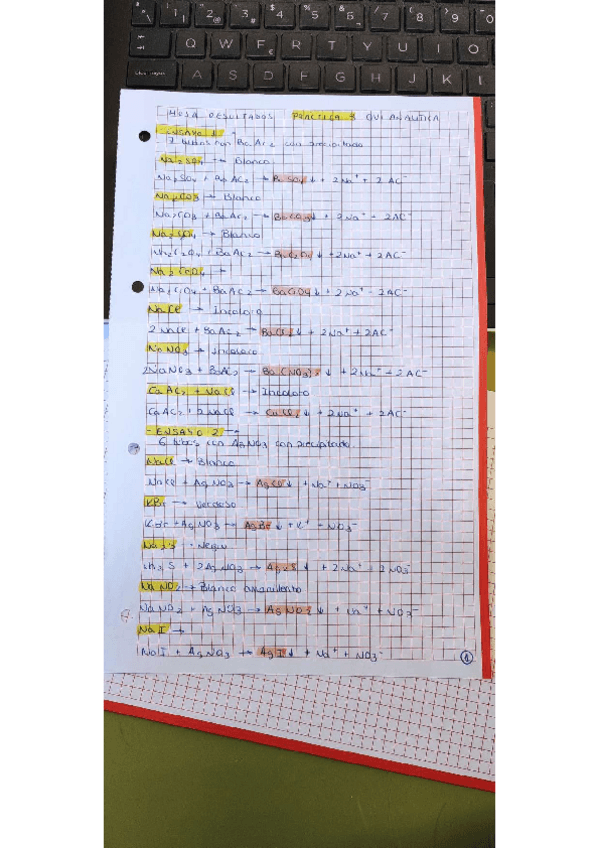 2 3 4 5 6 7 8 9 0
Q W E R T Y U I O
A S D F G H J K
HOJA RESULTADOS PRÁCTICA QUI ANALÍTICA
- ENSAYO 1
7 tubos con BaAc2 con precipitado
Na2SO4 → Blanco
Na2SO4 + BaAc2 → BaSO4↓ + 2Na+ + 2AC-
Na2CO3 → Blanco
Na2CO3 + BaAc2 → BaCO3↓ + 2Na+ + 2AC-
Blanco
Na2C2O4 + BaAc2 → BaC2O4↓ + 2Na+ + 2AC-
→
+ BaAc2 → ↓ + 2Na+ + 2AC-
NaCl → Incoloro
2NaCl + BaAc2 → ↓ + 2Na+ + 2AC-
NaNO3 → Incoloro
2NaNO3 + BaAc2 → Ba(NO3)2↓ + 2Na+ + 2AC-
CaAc2 + NaCl → Incoloro
CaAc2 + 2NaCl → CaCl2↓ + 2Na+ + 2AC-
- ENSAYO 2
6 tubos con AgNO3 con precipitado
NaCl → Blanco
NaCl + AgNO3 → AgCl↓ + Na+ + NO3-
KBr → Verdoso
KBr + AgNO3 → AgBr↓ + K+ + NO3-
Na2S → Negro
Na2S + 2AgNO3 → Ag2S↓ + 2Na+ + 2NO3-
NaNO2 → Blanco amarillento
NaNO2 + AgNO3 → ↓ + Na+ + NO3-
NaI →
NaI + AgNO3 → AgI↓ + Na+ + NO3-
1